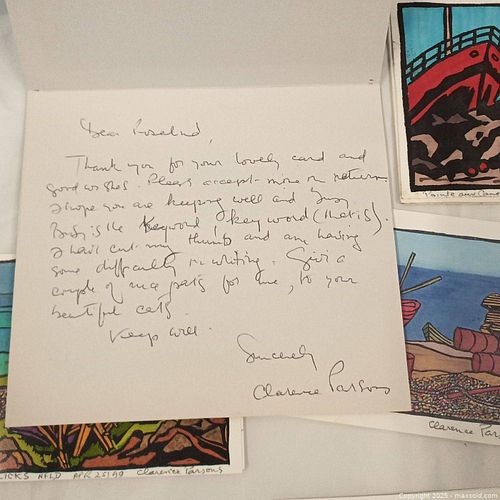 Dear Rosalind,
Thank you for your lovely card and
good wishes. Please accept mine in return.
I hope you are keeping well and busy
Busy is the Keyword / key word (that is).
I have cut my thumb and am having
some difficulty in writing. Give a
couple of nice pats for me, to your
beautiful cats.
Keep well.
Sincerely
Clarence Parsons
Pointe aux
Clarence Par
LICKS NFLD APR 25/90 Clarence Parsons
Copyright 2025 - maxsold.com